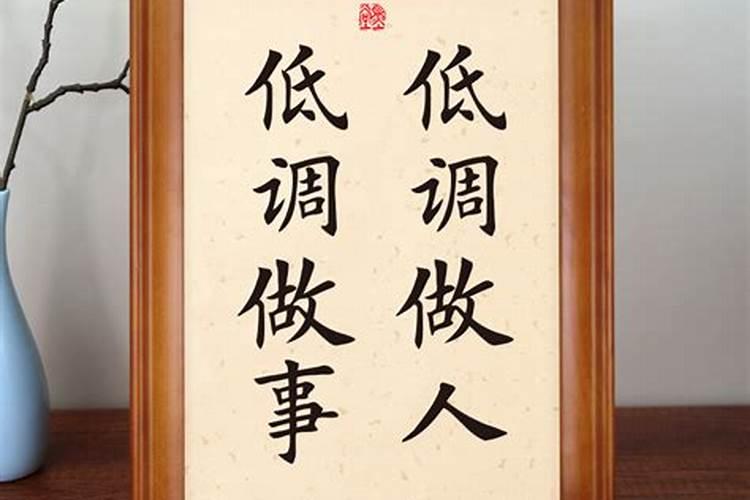 低调做人
低调做事